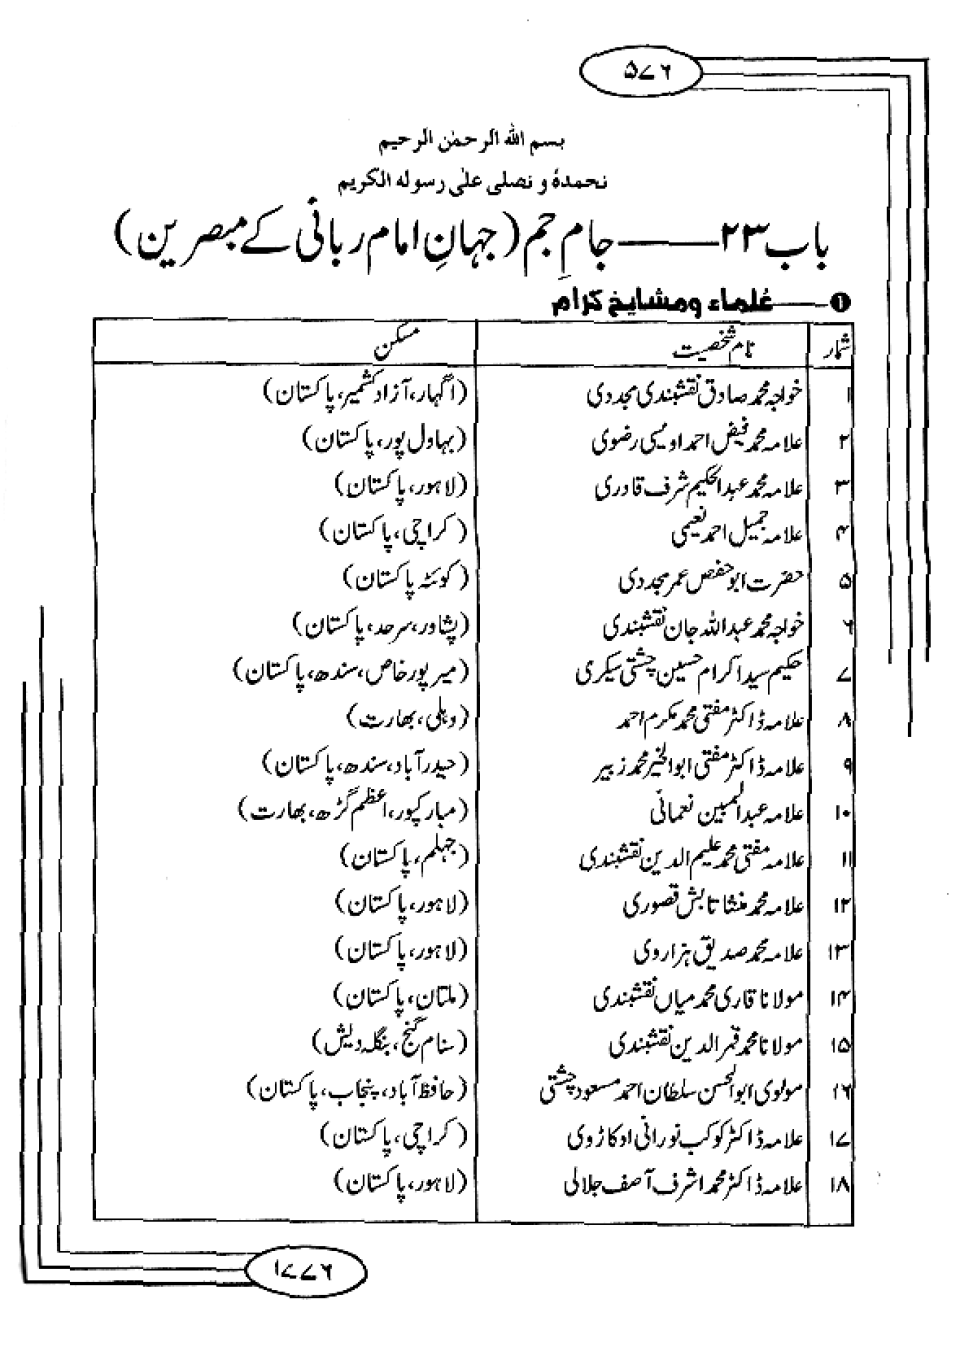 ۵۷۶
بسم الله الرحمٰن الرحیم
نحمدہٗ و نصلی علیٰ رسولہ الکریم
باب ۲۳ ــــــ جامِ جم (جہانِ امام ربانی کے مبصرین)
❶ ــــــ علماء ومشایخ کرام
شمار نام شخصیت مسکن
۱ خواجہ محمد صادق نقشبندی مجددی (اگہار، آزاد کشمیر، پاکستان)
۲ علامہ محمد فیض احمد اویسی رضوی (بہاول پور، پاکستان)
۳ علامہ محمد عبدالحکیم شرف قادری (لاہور، پاکستان)
۴ علامہ جمیل احمد نعیمی (کراچی، پاکستان)
۵ حضرت ابوحفص عمر مجددی (کوئٹہ پاکستان)
۶ خواجہ محمد عبداللہ جان نقشبندی (پشاور، سرحد، پاکستان)
۷ حکیم سید اکرام حسین چشتی سیکری (میرپور خاص، سندھ، پاکستان)
۸ علامہ ڈاکٹر مفتی محمد مکرم احمد (دہلی، بھارت)
۹ علامہ ڈاکٹر مفتی ابوالخیر محمد زبیر (حیدرآباد، سندھ، پاکستان)
۱۰ علامہ عبدالمبین نعمانی (مبارکپور، اعظم گڑھ، بھارت)
۱۱ علامہ مفتی محمد علیم الدین نقشبندی (جہلم، پاکستان)
۱۲ علامہ محمد منشا تابش قصوری (لاہور، پاکستان)
۱۳ علامہ محمد صدیق ہزاروی (لاہور، پاکستان)
۱۴ مولانا قاری محمد میاں نقشبندی (ملتان، پاکستان)
۱۵ مولانا محمد قمر الدین نقشبندی (سنام گنج، بنگلہ دیش)
۱۶ مولوی ابوالحسن سلطان احمد مسعود چشتی (حافظ آباد، پنجاب، پاکستان)
۱۷ علامہ ڈاکٹر کوکب نورانی اوکاڑوی (کراچی، پاکستان)
۱۸ علامہ ڈاکٹر محمد اشرف آصف جلالی (لاہور، پاکستان)
۱۷۷۶